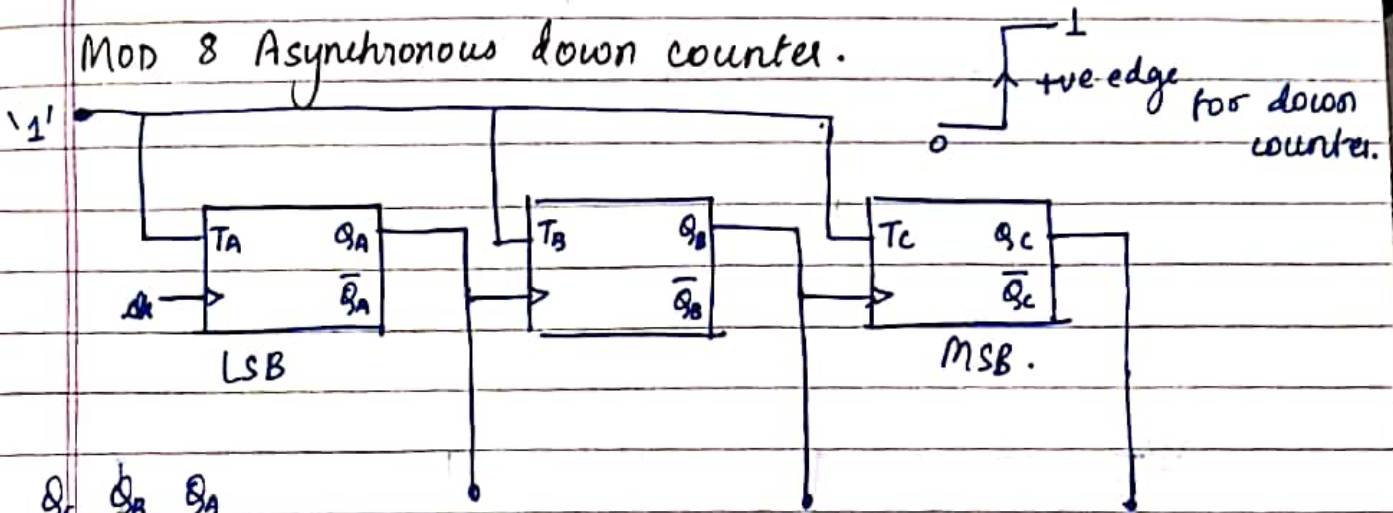 MOD 8 Asynchronous down counter.
1
+ve edge for down
counter.
'1'
0
TA QA
Q̅A
TB QB
Q̅B
TC QC
Q̅C
LSB
MSB.
QB QA